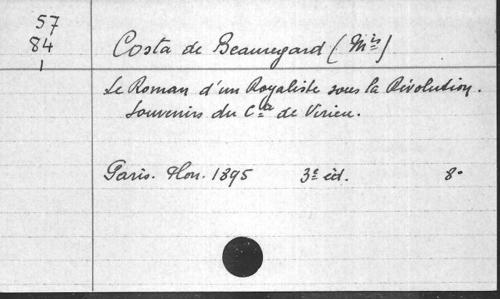 57
84
1
Costa de Beauregard (Mis)
Le Roman d'un Royaliste sous la Révolution.
Souvenirs du Cte de Virieu.
Paris. Plon. 1895 3e éd. 8°